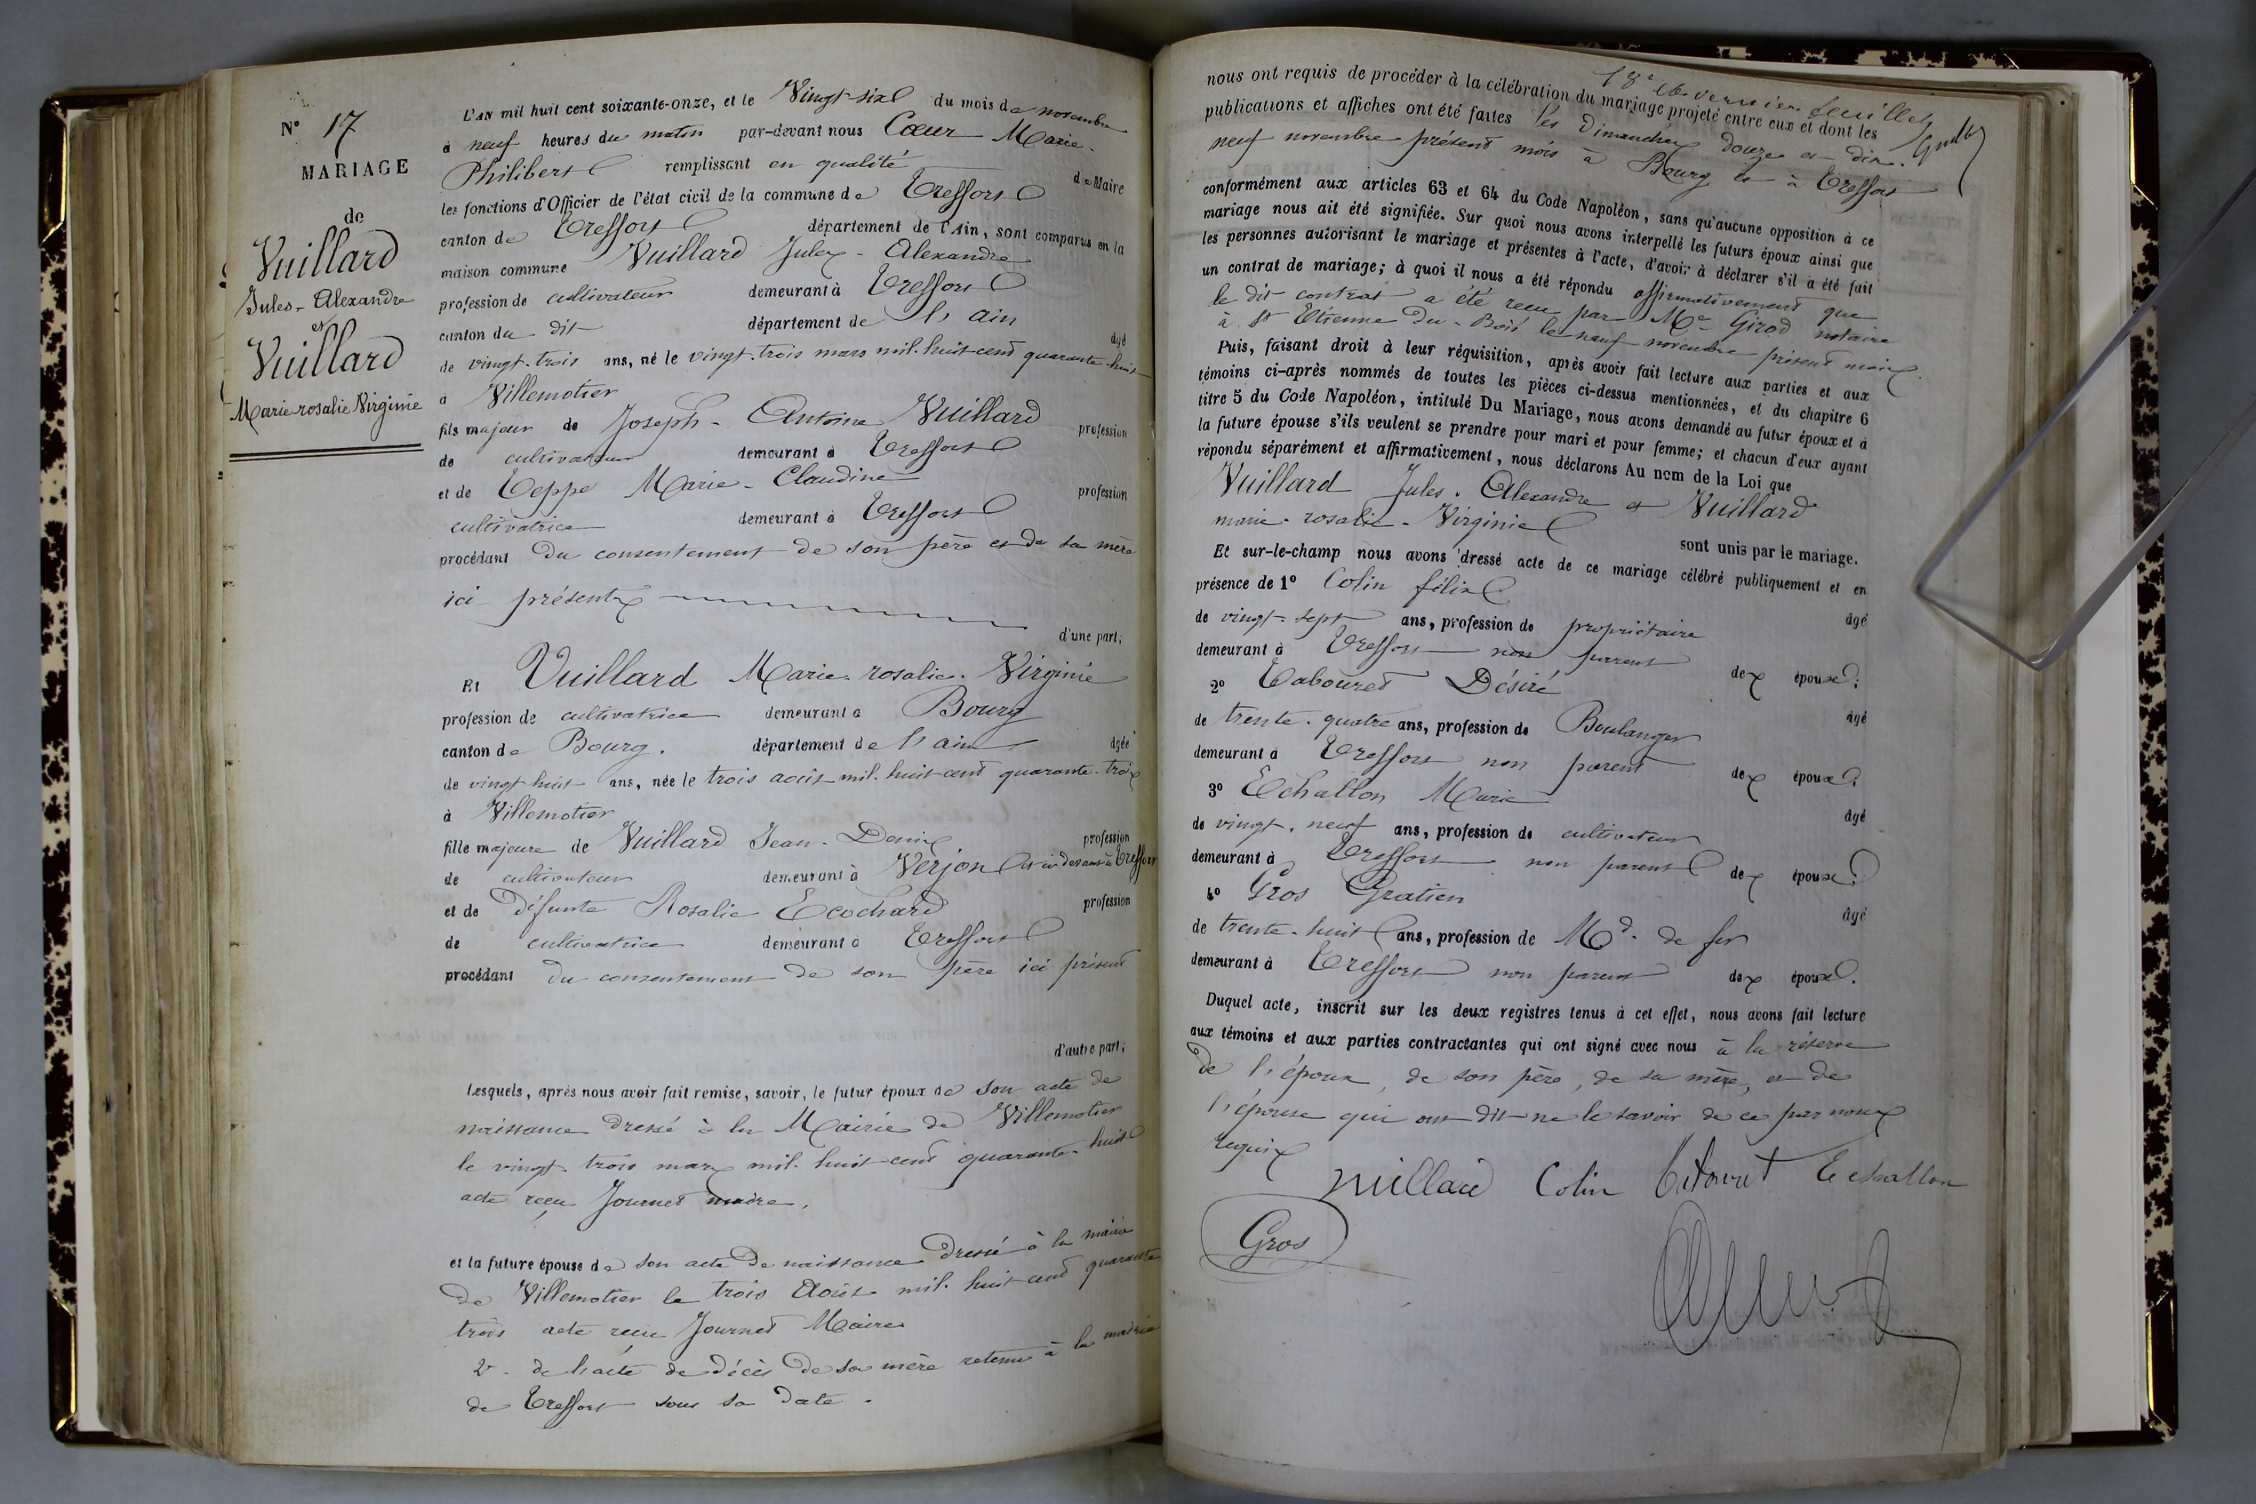 N° 17
MARIAGE
de
Vuillard
Jules-Alexandre
et
Vuillard
Marie rosalie Virginie
L'an mil huit cent soixante-onze, et le Vingt-six du mois de novembre
à neuf heures du matin par-devant nous Cœur Marie-
Philibert remplissant en qualité de Maire
les fonctions d'Officier de l'état civil de la commune de Treffort
canton de Treffort département de l'Ain, sont comparus en la
maison commune Vuillard Jules-Alexandre
profession de cultivateur demeurant à Treffort
canton du dit département de l'ain âgé
de vingt-trois ans, né le vingt-trois mars mil-huit cent quarante-huit
à Villemotier
fils majeur de Joseph-Antoine Vuillard profession
de cultivateur demeurant à Treffort
et de Teppe Marie-Claudine profession
cultivatrice demeurant à Treffort
procédant du consentement de son père et de sa mère
ici présents
d'une part;
Et Vuillard Marie-rosalie-Virginie
profession de cultivatrice demeurant à Bourg
canton de Bourg. département de l'ain âgée
de vingt huit ans, née le trois août mil-huit cent quarante-trois
à Villemotier
fille majeure de Vuillard Jean-Denis profession
de cultivateur demeurant à Verjon à Treffort
et de défunte Rosalie Ecochard profession
de cultivatrice demeurant à Treffort
procédant du consentement de son père ici présent
d'autre part;
Lesquels, après nous avoir fait remise, savoir, le futur époux de son acte de
naissance dressé à la Mairie de Villemotier
le vingt-trois mars mil-huit cent quarante-huit
acte reçu Journet maire,
et la future épouse de son acte de naissance dressé à la mairie
de Villemotier le trois Août mil-huit cent quarante
trois acte reçu Journet Maire
2°- de l'acte de décès de sa mère retenu à la mairie
de Treffort sous sa date.
18e et dernier feuillet
nous ont requis de procéder à la célébration du mariage projeté entre eux et dont les
publications et affiches ont été faites les dimanches douze et dix-
neuf novembre présent mois à Bourg et à Treffort
conformément aux articles 63 et 64 du Code Napoléon, sans qu'aucune opposition à ce
mariage nous ait été signifiée. Sur quoi nous avons interpellé les futurs époux ainsi que
les personnes autorisant le mariage et présentes à l'acte, d'avoir à déclarer s'il a été fait
un contrat de mariage; à quoi il nous a été répondu affirmativement que
le dit contrat a été reçu par Me Girod notaire
à St Etienne du-Bois le neuf novembre présent mois.
Puis, faisant droit à leur réquisition, après avoir fait lecture aux parties et aux
témoins ci-après nommés de toutes les pièces ci-dessus mentionnées, et du chapitre 6
titre 5 du Code Napoléon, intitulé Du Mariage, nous avons demandé au futur époux et à
la future épouse s'ils veulent se prendre pour mari et pour femme; et chacun d'eux ayant
répondu séparément et affirmativement, nous déclarons Au nom de la Loi que
Vuillard Jules-Alexandre et Vuillard
marie-rosalie-Virginie sont unis par le mariage.
Et sur-le-champ nous avons dressé acte de ce mariage célébré publiquement et en
présence de 1° Colin félix âgé
de vingt-sept ans, profession de propriétaire
demeurant à Treffort non parent des époux;
2° Tabouret Désiré âgé
de trente-quatre ans, profession de Boulanger
demeurant à Treffort non parent des époux;
3° Echallon Marie âgé
de vingt-neuf ans, profession de cultivateur
demeurant à Treffort non parent des époux;
4° Gros Gratien âgé
de trente-huit ans, profession de Md. de fer
demeurant à Treffort non parent des époux.
Duquel acte, inscrit sur les deux registres tenus à cet effet, nous avons fait lecture
aux témoins et aux parties contractantes qui ont signé avec nous à la réserve
de l'époux, de son père, de sa mère, et de
l'épouse qui ont dit ne le savoir de ce par nous
requis
vuillard Colin Tabouret Echallon
Gros